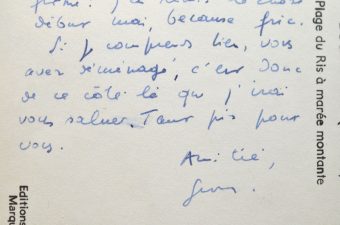 début mai, because fric.
Si je comprends bien, vous
avez déménagé, c'est donc
de ce côté là que j'irai
vous saluer. Tant pis pour
vous.
Amitié,
Plage du Ris à marée montante
Editions
Marqu